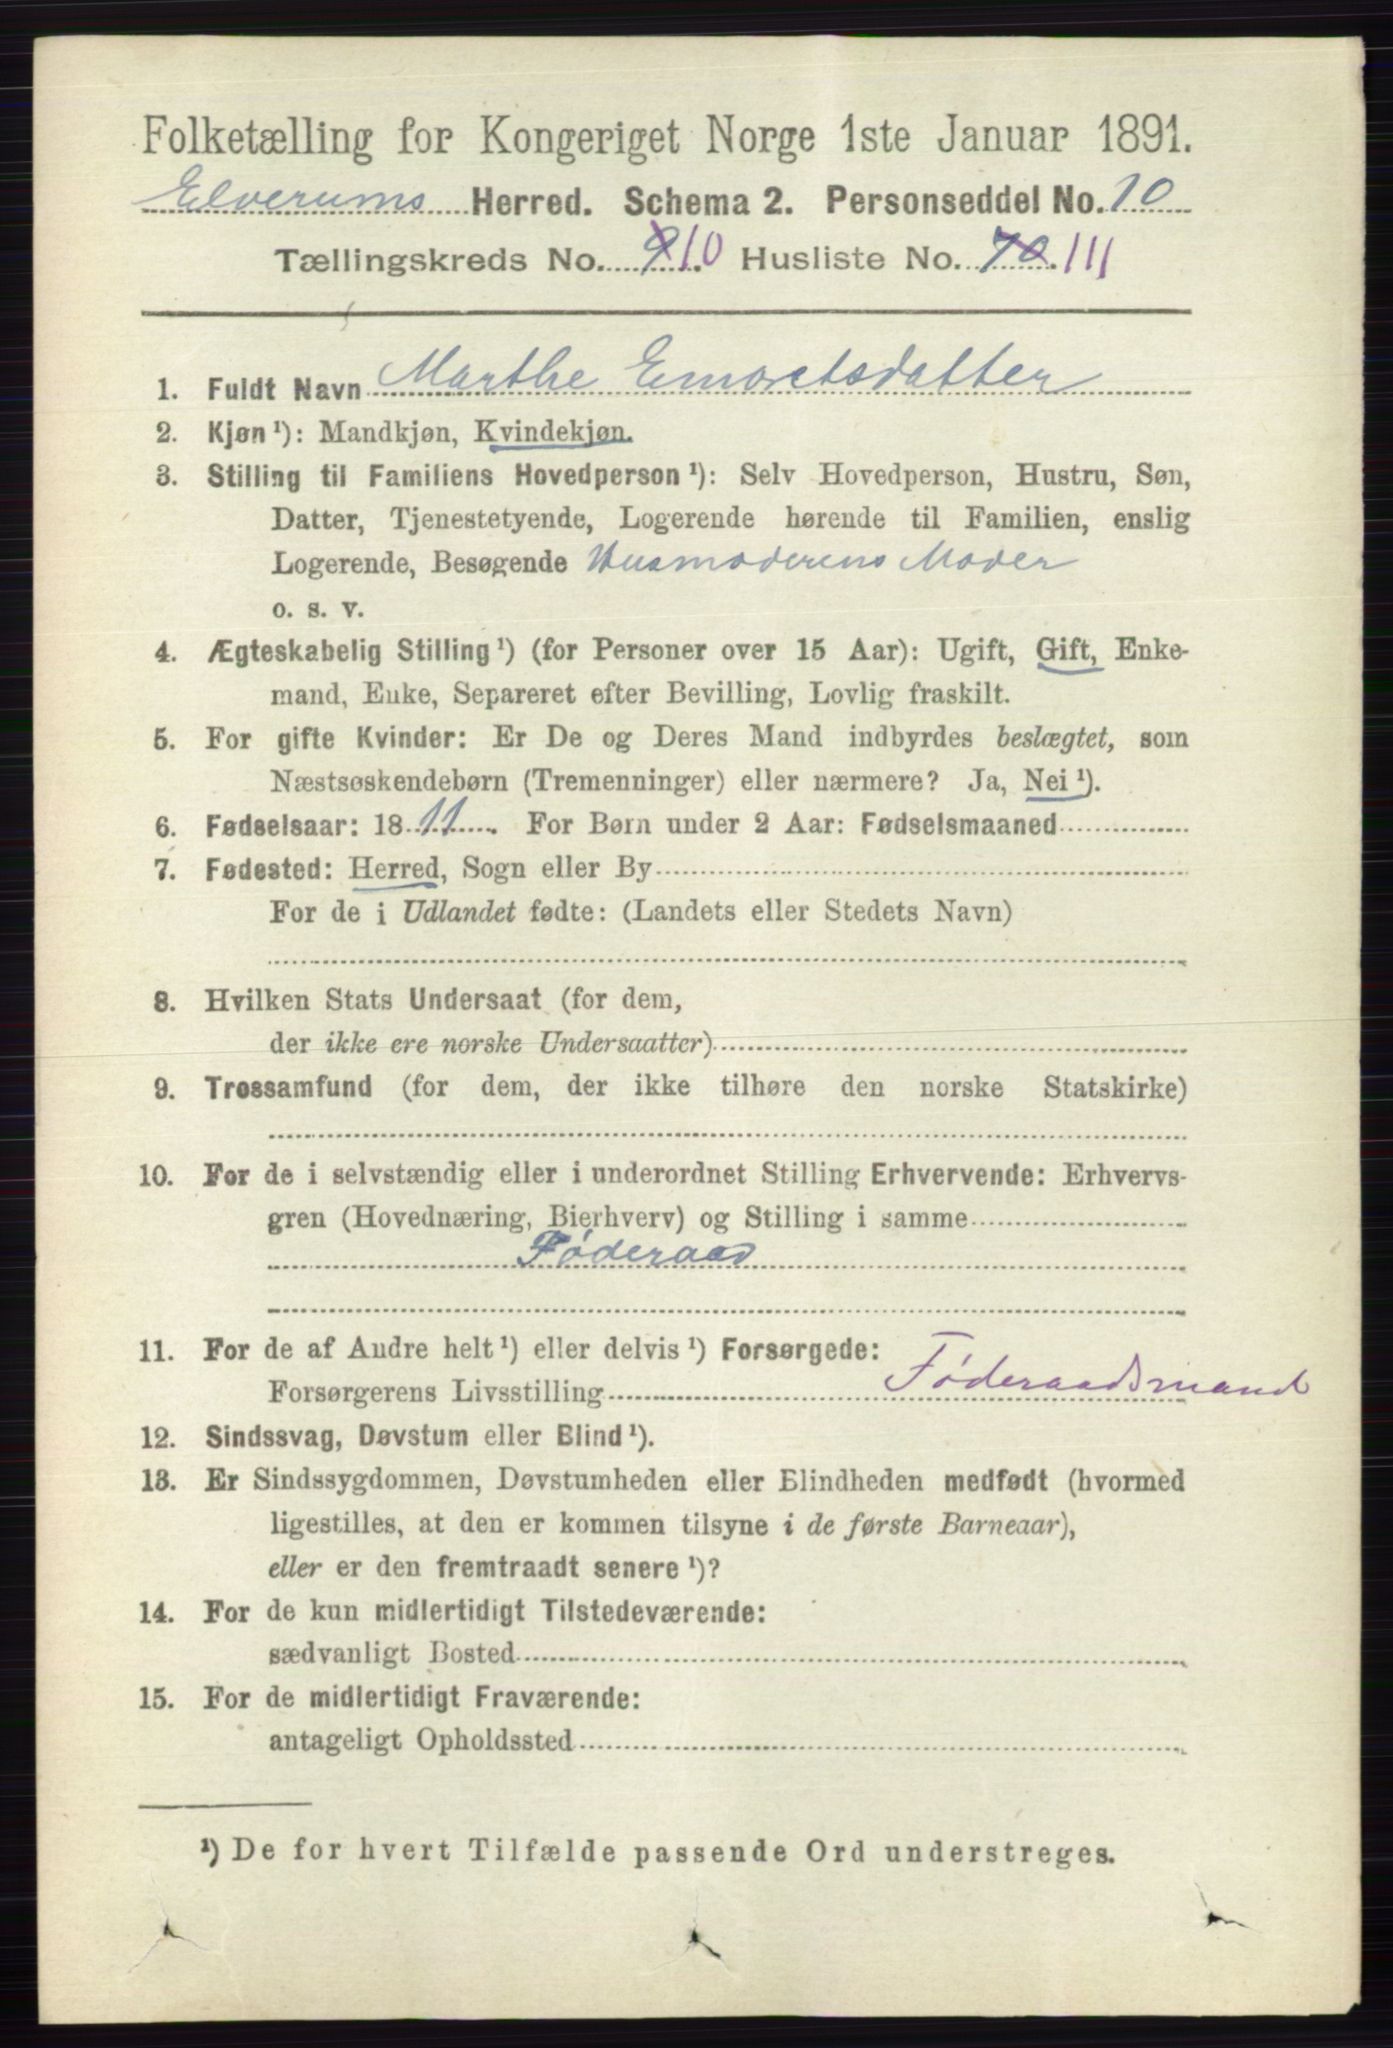 Folketælling for Kongeriget Norge 1ste Januar 1891.
Elverums Herred. Schema 2. Personseddel No. 10
Tællingskreds No. 9 10 Husliste No. 70 111
1. Fuldt Navn Marthe Emoretsdatter
2. Kjøn ¹): Mandkjøn, Kvindekjøn.
3. Stilling til Familiens Hovedperson ¹): Selv Hovedperson, Hustru, Søn,
Datter, Tjenestetyende, Logerende hørende til Familien, enslig
Logerende, Besøgende Husmoderens Moder
o. s. v.
4. Ægteskabelig Stilling ¹) (for Personer over 15 Aar): Ugift, Gift, Enke-
mand, Enke, Separeret efter Bevilling, Lovlig fraskilt.
5. For gifte Kvinder: Er De og Deres Mand indbyrdes beslægtet, som
Næstsøskendebørn (Tremenninger) eller nærmere? Ja, Nei ¹).
6. Fødselsaar: 18 11. For Børn under 2 Aar: Fødselsmaaned
7. Fødested: Herred, Sogn eller By
For de i Udlandet fødte: (Landets eller Stedets Navn)
8. Hvilken Stats Undersaat (for dem,
der ikke ere norske Undersaatter)
9. Trossamfund (for dem, der ikke tilhøre den norske Statskirke)
10. For de i selvstændig eller i underordnet Stilling Erhvervende: Erhvervs-
gren (Hovednæring, Bierhverv) og Stilling i samme
Føderaad
11. For de af Andre helt ¹) eller delvis ¹) Forsørgede:
Forsørgerens Livsstilling Føderaadsmand
12. Sindssvag, Døvstum eller Blind ¹).
13. Er Sindssygdommen, Døvstumheden eller Blindheden medfødt (hvormed
ligestilles, at den er kommen tilsyne i de første Barneaar),
eller er den fremtraadt senere ¹)?
14. For de kun midlertidigt Tilstedeværende:
sædvanligt Bosted
15. For de midlertidigt Fraværende:
antageligt Opholdssted
¹) De for hvert Tilfælde passende Ord understreges.